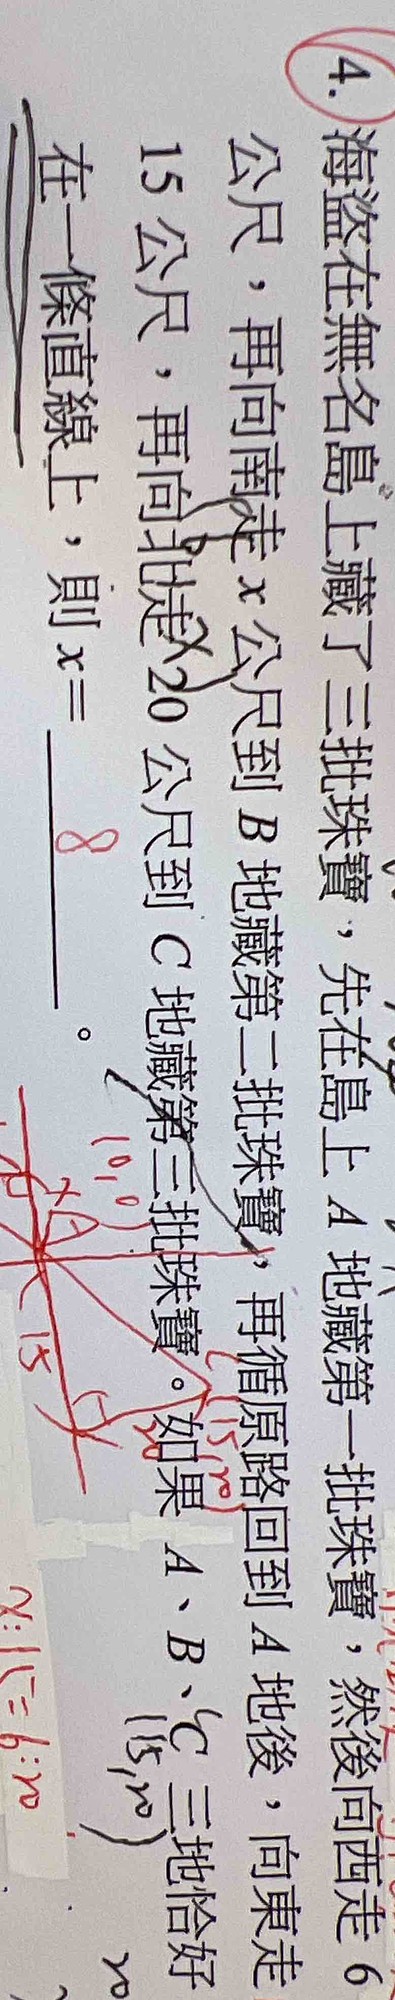 4. 海盜在無名島上藏了三批珠寶，先在島上 A 地藏第一批珠寶，然後向西走 6
公尺，再向南走 x 公尺到 B 地藏第二批珠寶，再循原路回到 A 地後，向東走
15 公尺，再向北走 20 公尺到 C 地藏第三批珠寶。如果 A、B、C 三地恰好
在一條直線上，則 x= 8 。
(0,0)
A
15
(15,20)
20
(15,20)
20
x:15=6:20